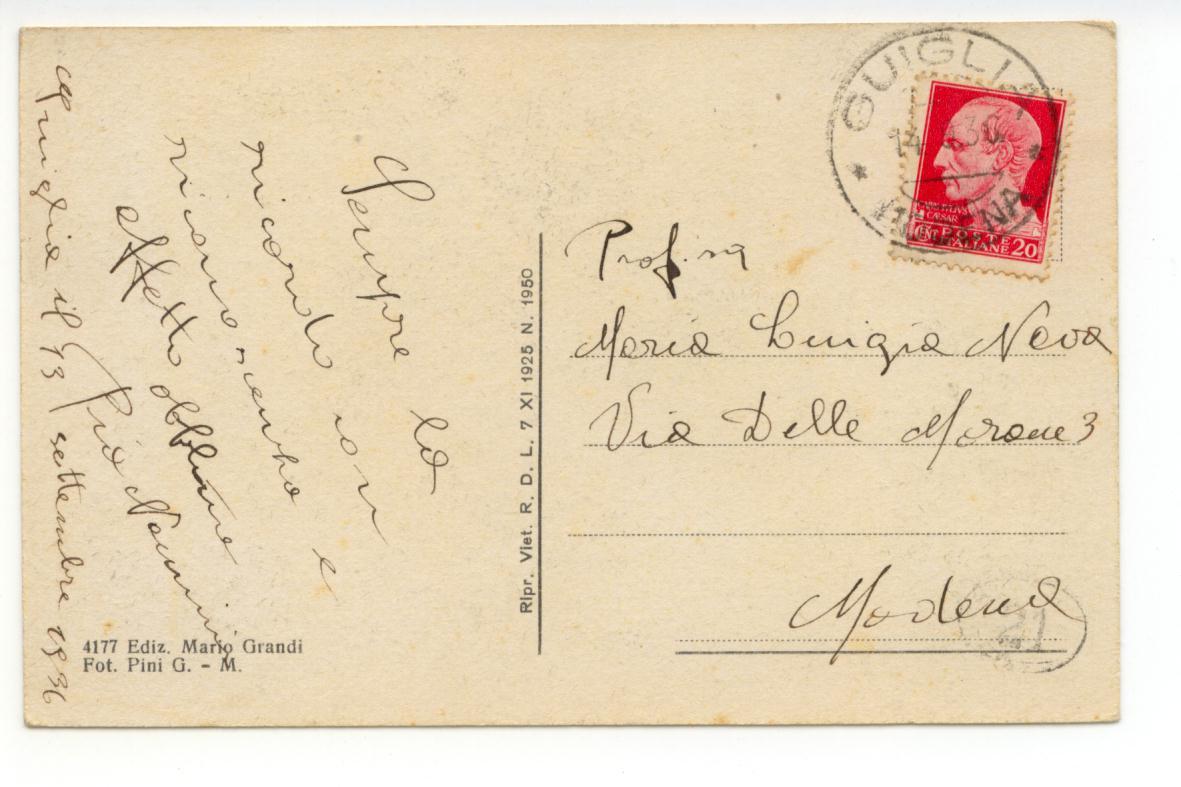 Guiglia il 13 settembre 1936
Sempre la
ricordo con
riconoscenza e
affetto
Pio Nannini
4177 Ediz. Mario Grandi
Fot. Pini G. - M.
Ripr. Viet. R. D. L. 7 XI 1925 N. 1950
GUIGLIA
14
36
CÆSAR
CENT POSTE
ITALIANE 20
Prof.ssa
Maria Luigia Nava
Via Delle Morane 3
Modena
21